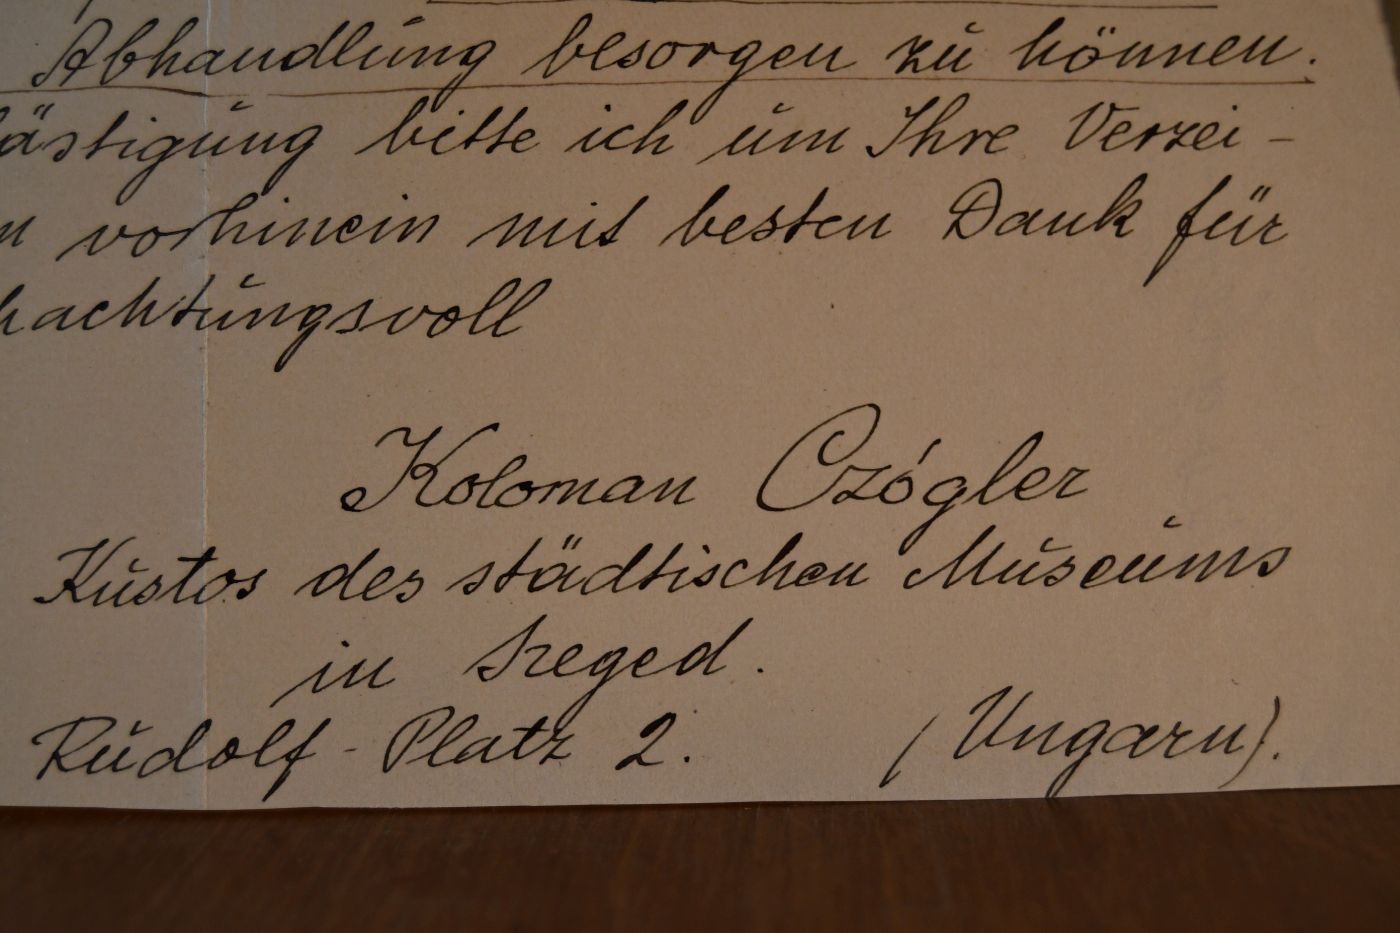 Abhandlung besorgen zu können.
ästigung bitte ich um Ihre Verzei-
n vorhinein mit besten Dank für
hachtungsvoll
Koloman Czógler
Kustos des städtischen Museums
in Szeged.
Rudolf-Platz 2. (Ungarn).